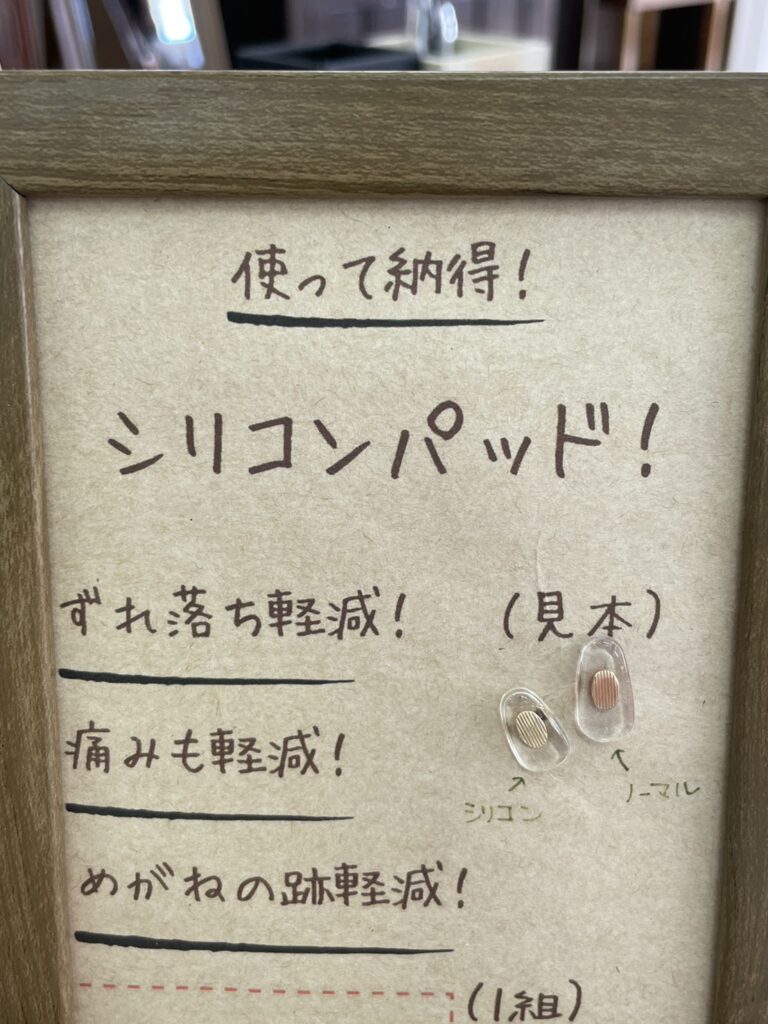 使って納得!
シリコンパッド!
ずれ落ち軽減!
(見本)
シリコン
ノーマル
痛みも軽減!
めがねの跡軽減!
(1組)